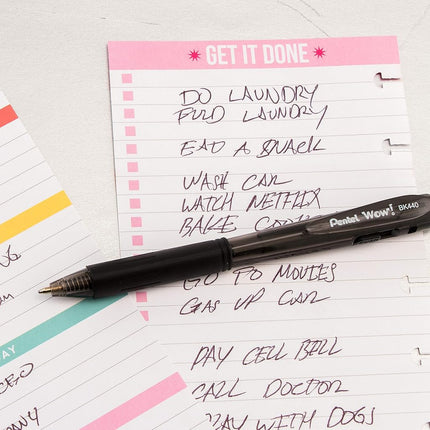 GET IT DONE
DO LAUNDRY
FOLD LAUNDRY
EAT A SNACK
WASH CAR
WATCH NETFLIX
BAKE
Pentel Wow! BK440
GO TO MOVIES
GAS UP CAR
PAY CELL BELL
CALL DOCTOR
WITH DOGS
AY
CEO